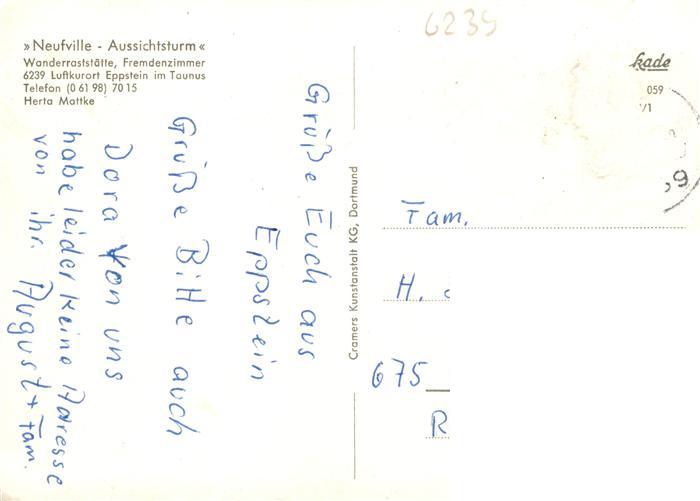 »Neufville - Aussichtsturm«
Wanderraststätte, Fremdenzimmer
6239 Luftkurort Eppstein im Taunus
Telefon (0 61 98) 70 15
Herta Mattke
6239
kade
059
1/1
Grüße Euch aus
Eppstein
Grüße Bitte auch
Dora Von uns
habe leider Keine Adresse
von ihr. August + Fam.
Cramers Kunstanstalt KG, Dortmund
Fam.
H.
675
R